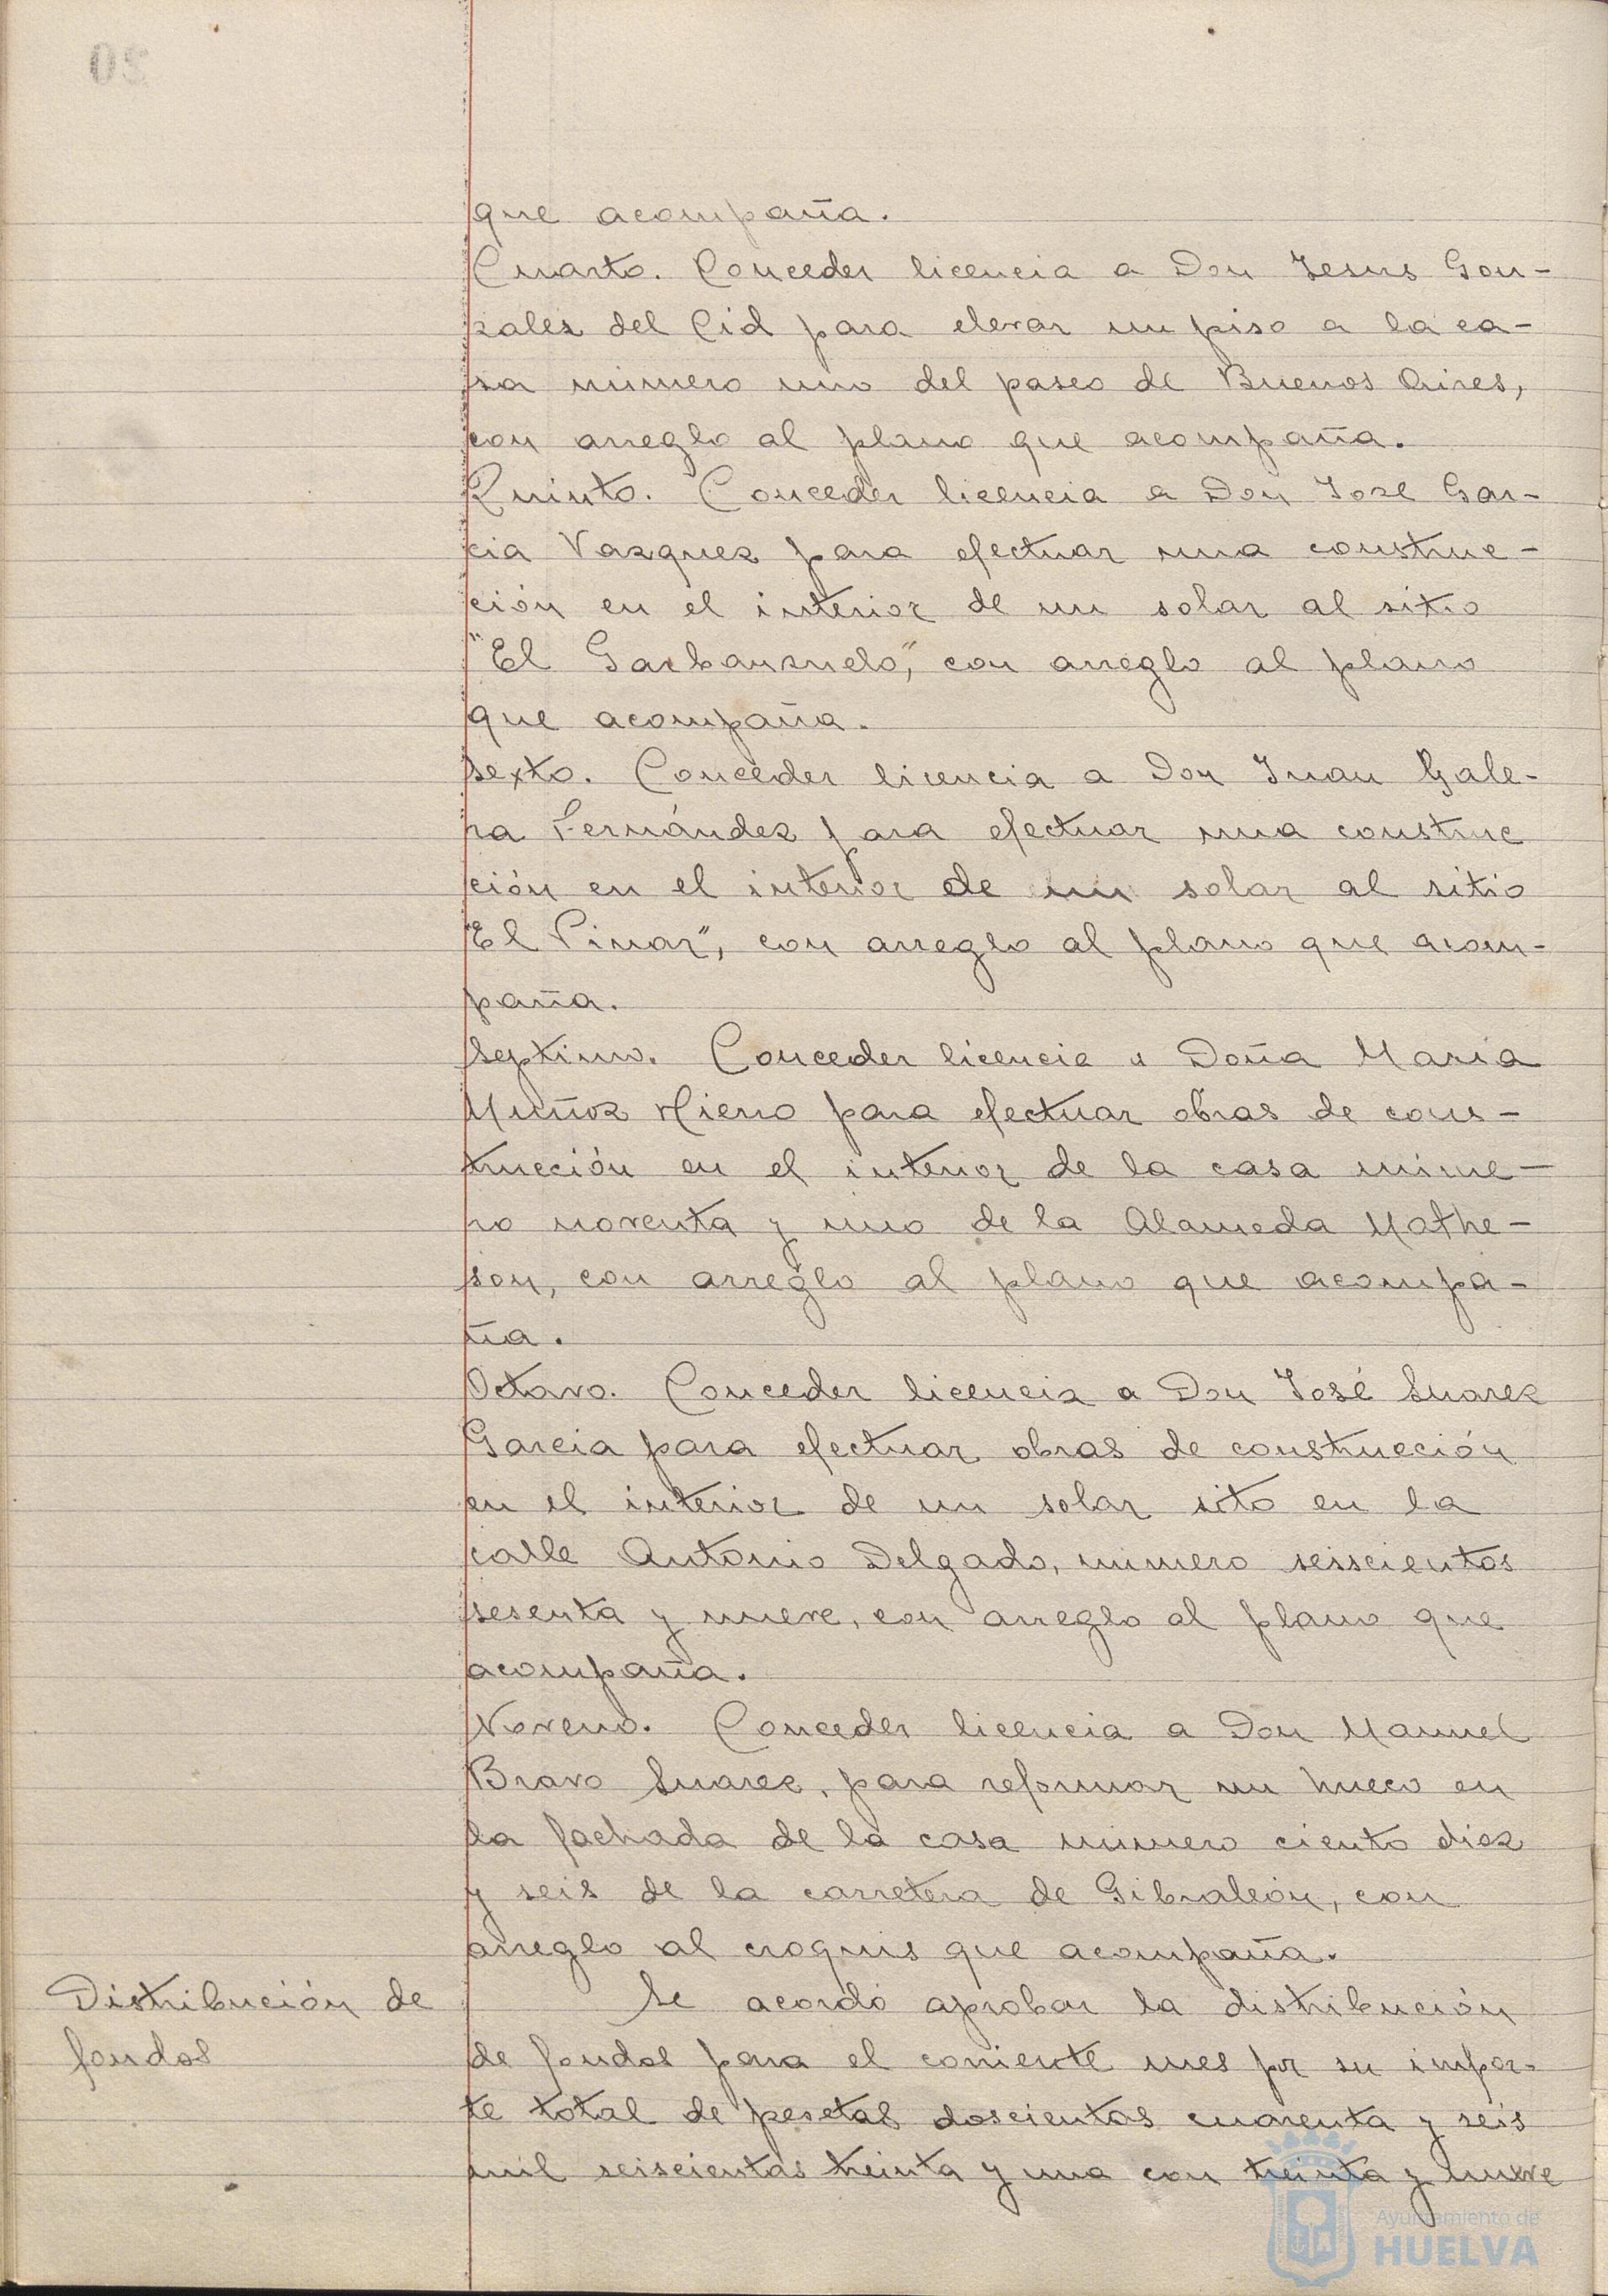 que acompaña.
Cuarto. Conceder licencia a Don Jesus Gon-
zalez del Cid para elevar un piso a la ca-
sa número uno del paseo de Buenos Aires,
con arreglo al plano que acompaña.
Quinto. Conceder licencia a Don José Gar-
cia Vazquez para efectuar una construc-
ción en el interior de un solar al sitio
"El Garbanzuelo", con arreglo al plano
que acompaña.
Sexto. Conceder licencia a Don Juan Gale-
ra Fernández para efectuar una construc
ción en el interior de un solar al sitio
"El Pinar", con arreglo al plano que acom-
paña.
Septimo. Conceder licencia a Doña Maria
Muñoz Hierro para efectuar obras de cons-
trucción en el interior de la casa núme-
ro noventa y uno de la Alameda Mathe-
son, con arreglo al plano que acompa-
ña.
Octavo. Conceder licencia a Don José Suarez
Garcia para efectuar obras de construcción
en el interior de un solar sito en la
calle Antonio Delgado, número seiscientos
sesenta y nueve, con arreglo al plano que
acompaña.
Noveno. Conceder licencia a Don Manuel
Bravo Suarez, para reformar un hueco en
la fachada de la casa número ciento diez
y seis de la carretera de Gibraleón, con
arreglo al croquis que acompaña.
Distribución de
fondos
Se acordó aprobar la distribución
de fondos para el corriente mes por su impor-
te total de pesetas doscientas cuarenta y seis
mil seiscientas treinta y una con treinta y nueve
Ayuntamiento de
HUELVA